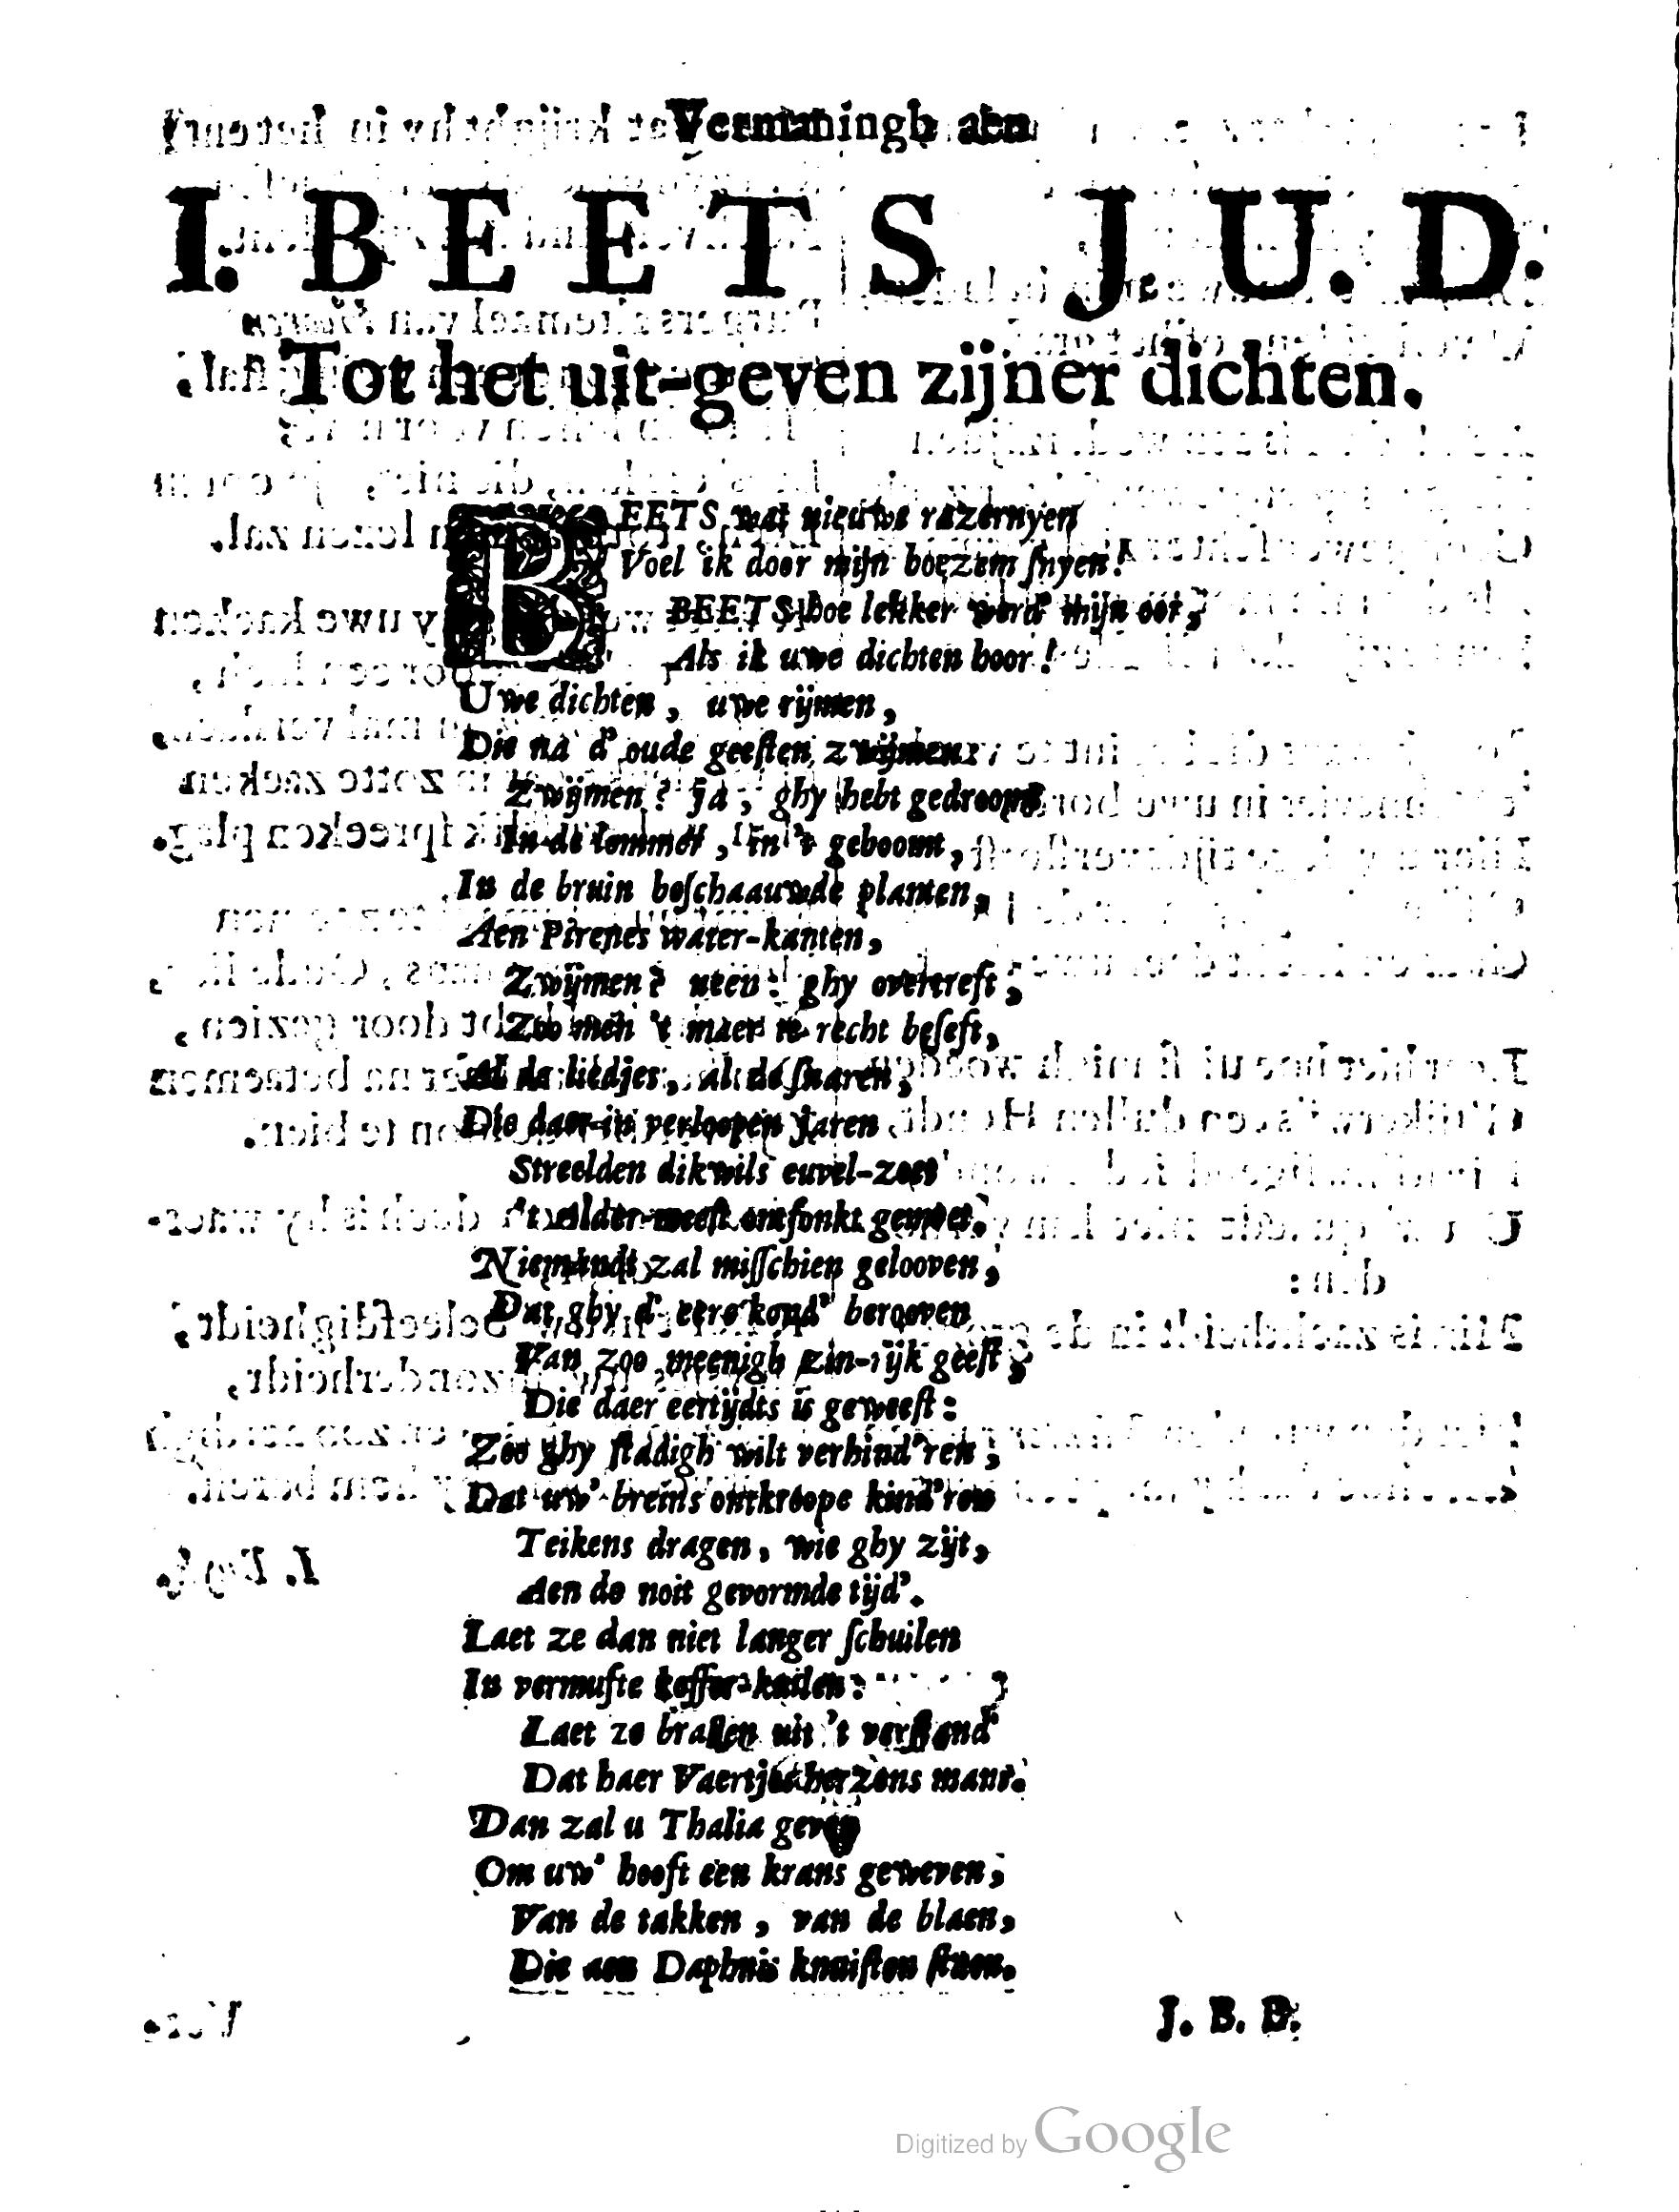 Vermaningh aen
I. BEETS J. U. D.
Tot het uit-geven zijner dichten.
BEETS, wat nieuwe razernyen
Voel ik door mijn boezem ſnyen!
BEETS, hoe lekker word' mijn oor,
Als ik uwe dichten hoor!
Uwe dichten, uwe rijmen,
Die na d' oude geeſten zwijmen:
Zwijmen? ja, ghy hebt gedroomt
In de lommer, in 't geboomt,
In de bruin beſchaauwde planten,
Aen Pirenes water-kanten,
Zwijmen? neen: ghy overtreft,
Zoo men 't maer te recht beſeft,
Al de liedjes, al de ſnaren,
Die daer in verloopen jaren
Streelden dikwils euvel-zoet
't Alder-meeſt ontfonkt gemoet.
Niemandt zal miſſchien gelooven,
Dat ghy d' eere kond' berooven
Van zoo meenigh zin-rijk geeſt,
Die daer eertijdts is geweeſt:
Zoo ghy ſtadigh wilt verhind'ren,
Dat uw' breins ontkroope kind'ren
Teikens dragen, wie ghy zijt,
Aen de noit gevormde tijd'.
Laet ze dan niet langer ſchuilen
In vermufte koffer-kuilen:
Laet ze brallen uit 't verſtand
Dat haer Vaertjes herzens mant.
Dan zal u Thalia geven
Om uw' hooft een krans geweven,
Van de takken, van de blaen,
Die aen Daphnis knuiſten ſtaen.
J. B. D.
Digitized by Google